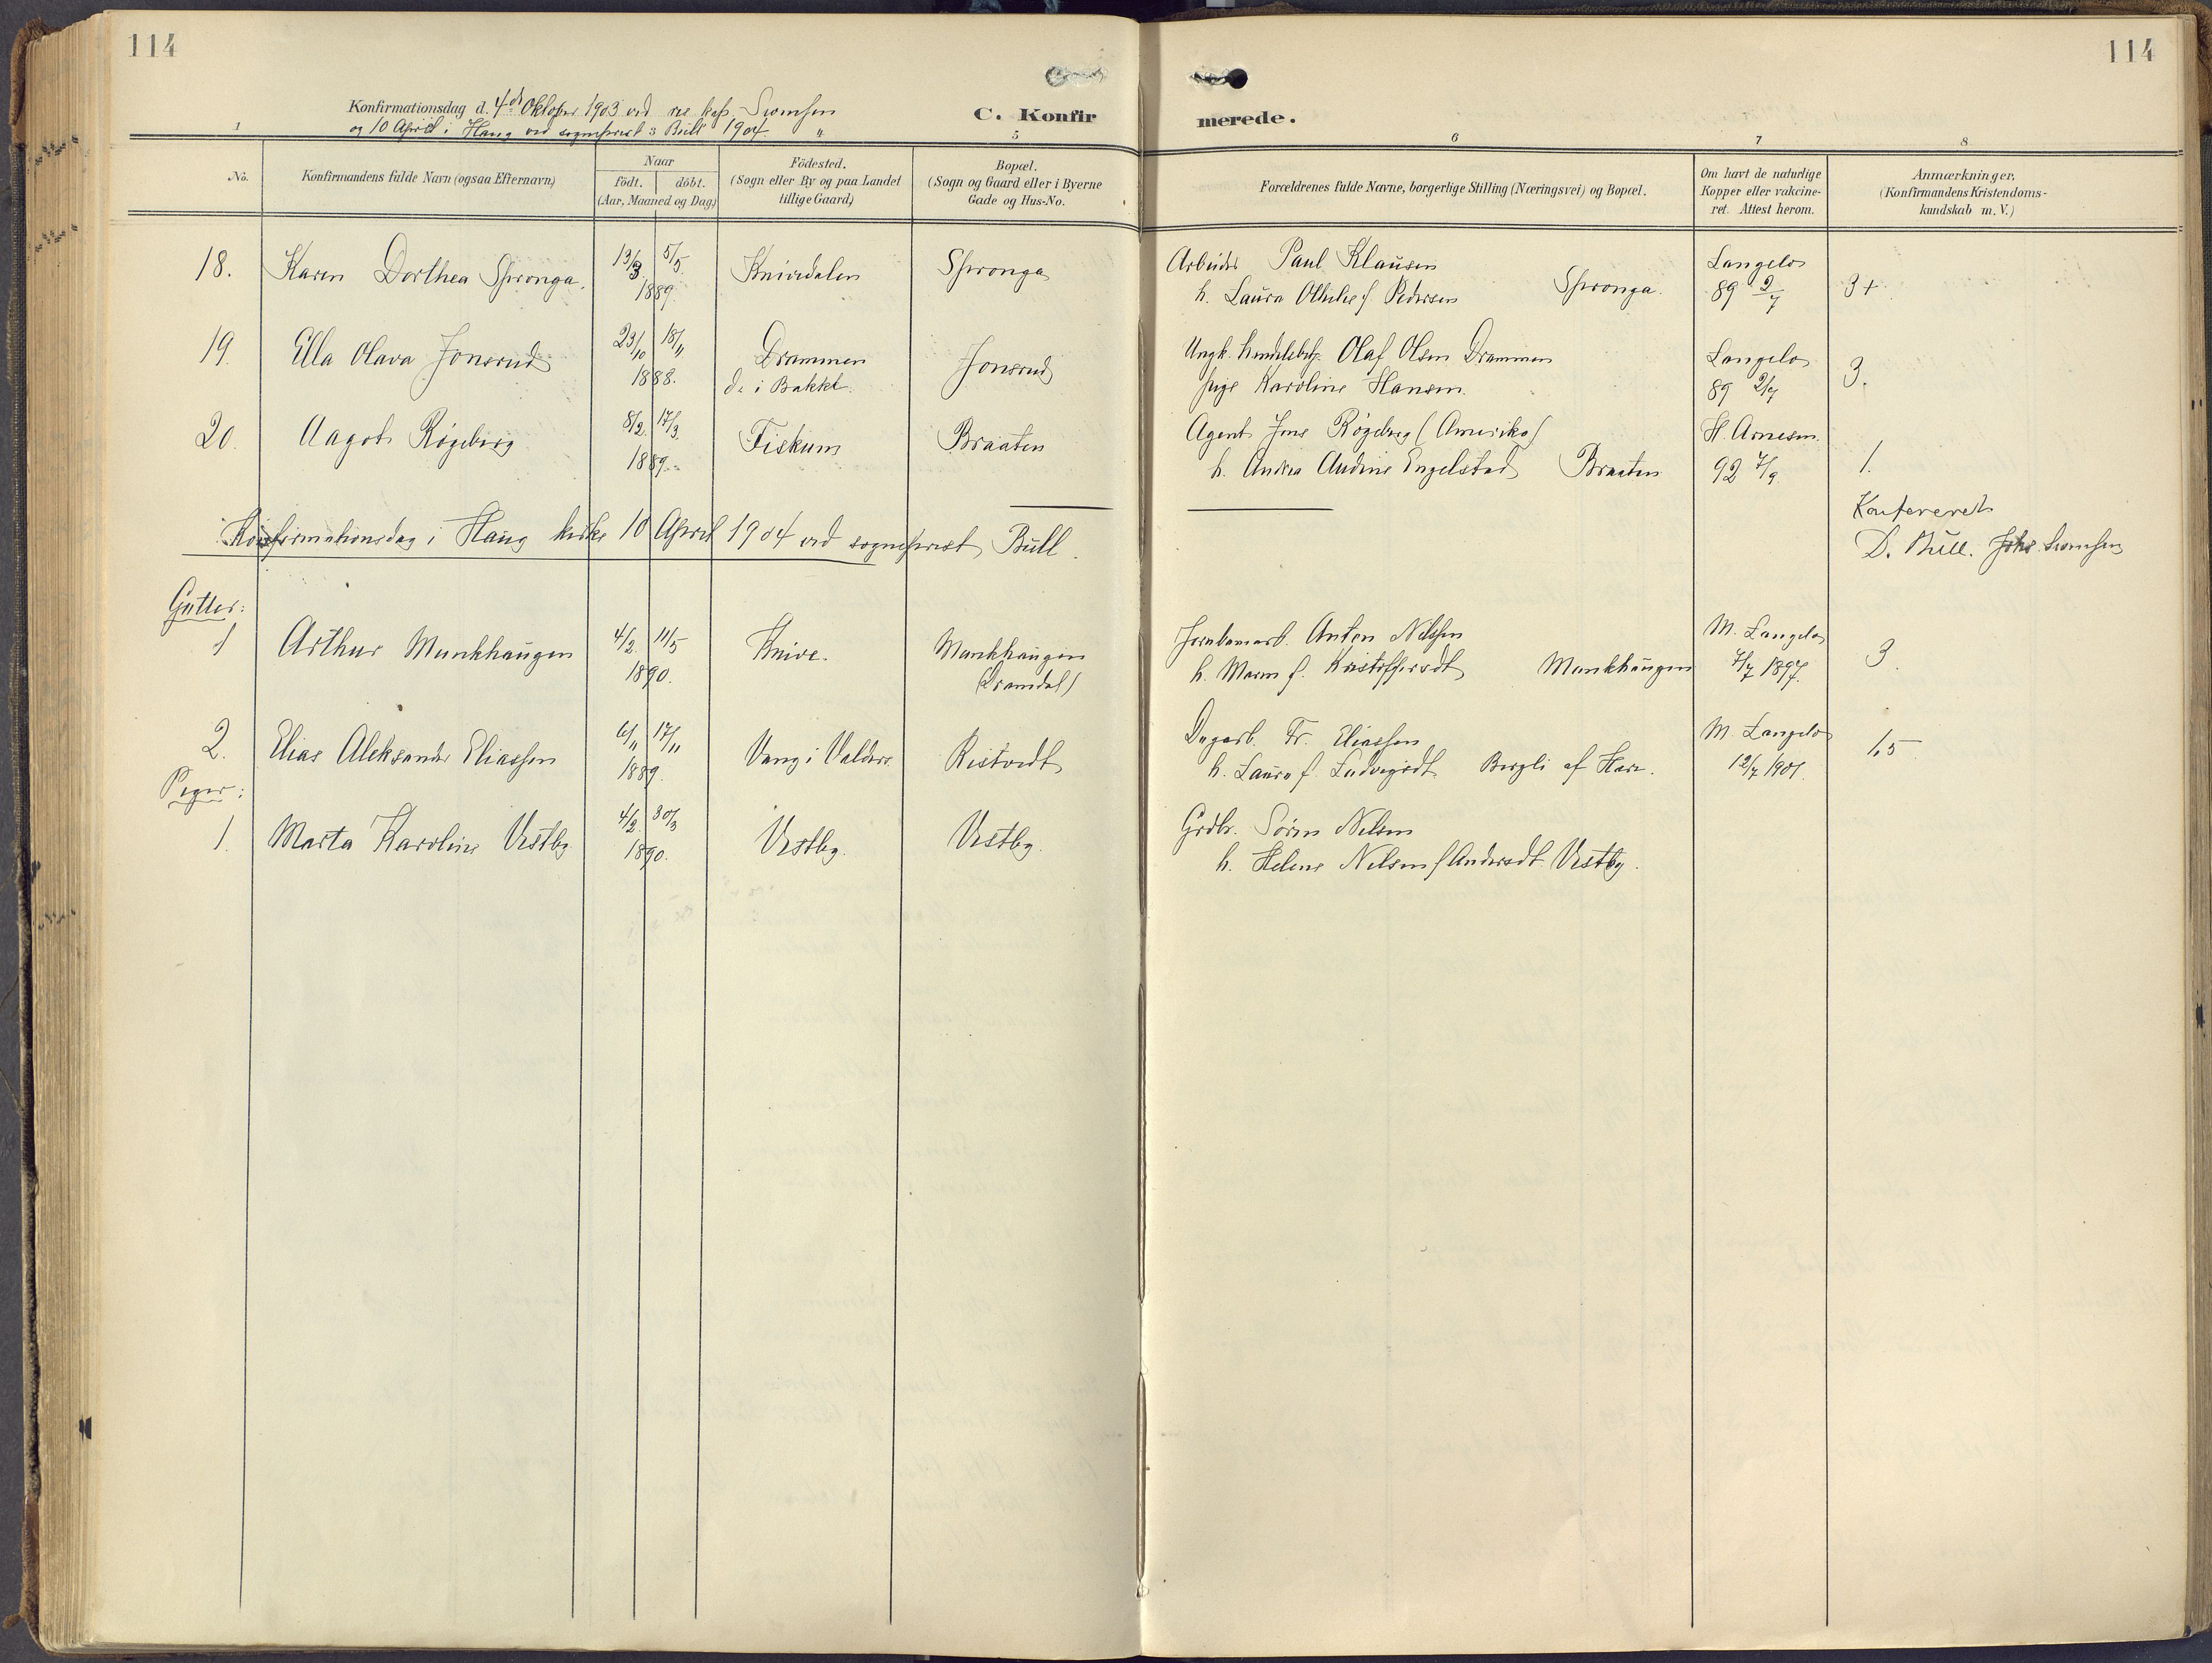 114
114
Konfirmationsdag d. 4de Oktober 1903 ved res kap Svensen
og 10 April i Haug ved sogneprest Bull 1904.
C. Konfirmerede.
1
5
6
7
8
No.
Konfirmandens fulde Navn (ogsaa Efternavn)
Naar
födt. döbt.
(Aar, Maaned og Dag.)
Födested.
(Sogn eller By og paa Landet
tillige Gaard.)
Bopæl.
(Sogn og Gaard eller i Byerne
Gade og Hus-No.
Forældrenes fulde Navne, borgerlige Stilling (Næringsvei) og Bopæl.
Om havt de naturlige
Kopper eller vakcine-
ret. Attest herom.
Anmærkninger,
(Konfirmandens Kristendoms-
kundskab m. V.)
18. Karen Dorthea Spronga. 13/3 5/5 1889. Knivedalen Spronga
Arbeider Paul Klausen
h. Laura Othilie f. Pedersen Spronga.
Langelo
89 2/7 3+
19. Ella Olava Jonsrud 23/10 18/11 1888. Drammen
dr i Bakket. Jonsrud
Ungk. Olaf Olsen Drammen
pige Karoline Hansen.
Langelo
89 2/7 3.
20. Aagot Røgeberg 8/2. 17/3. 1889. Fiskum Braaten
Agent Jens Røgeberg (Amerika)
h. Andrea Andine Engelstad Braaten
H. Arnesen.
92 7/9 1.
Konfereret
D. Bull. Johs. Svensen
Konfirmationsdag i Haug kirke 10 April 1904 ved sogneprest Bull.
Gutter:
1 Arthur Munkhaugen 4/2. 11/5 1890. Knive. Munkhaugen
(Dramdal)
Jernbanearb. Anton Nilssen
h. Maren f. Kristoffersdt Munkhaugen
M. Langelo
7/7 1897. 3.
2. Elias Aleksander Eliassen 6/11 17/11 1889. Vang i Valders. Ristvedt
Dagarb. Fr. Eliassen
h. Laura f. Ludvigsdt Bergli af Hare.
M. Langelo
12/7 1901. 1,5
Piger:
1. Marta Karoline Vestby 4/2. 30/3 1890. Vestby. Vestby.
Grdbr. Søren Nilsen
h. Helene Nilsen f Andersdt Vestby.